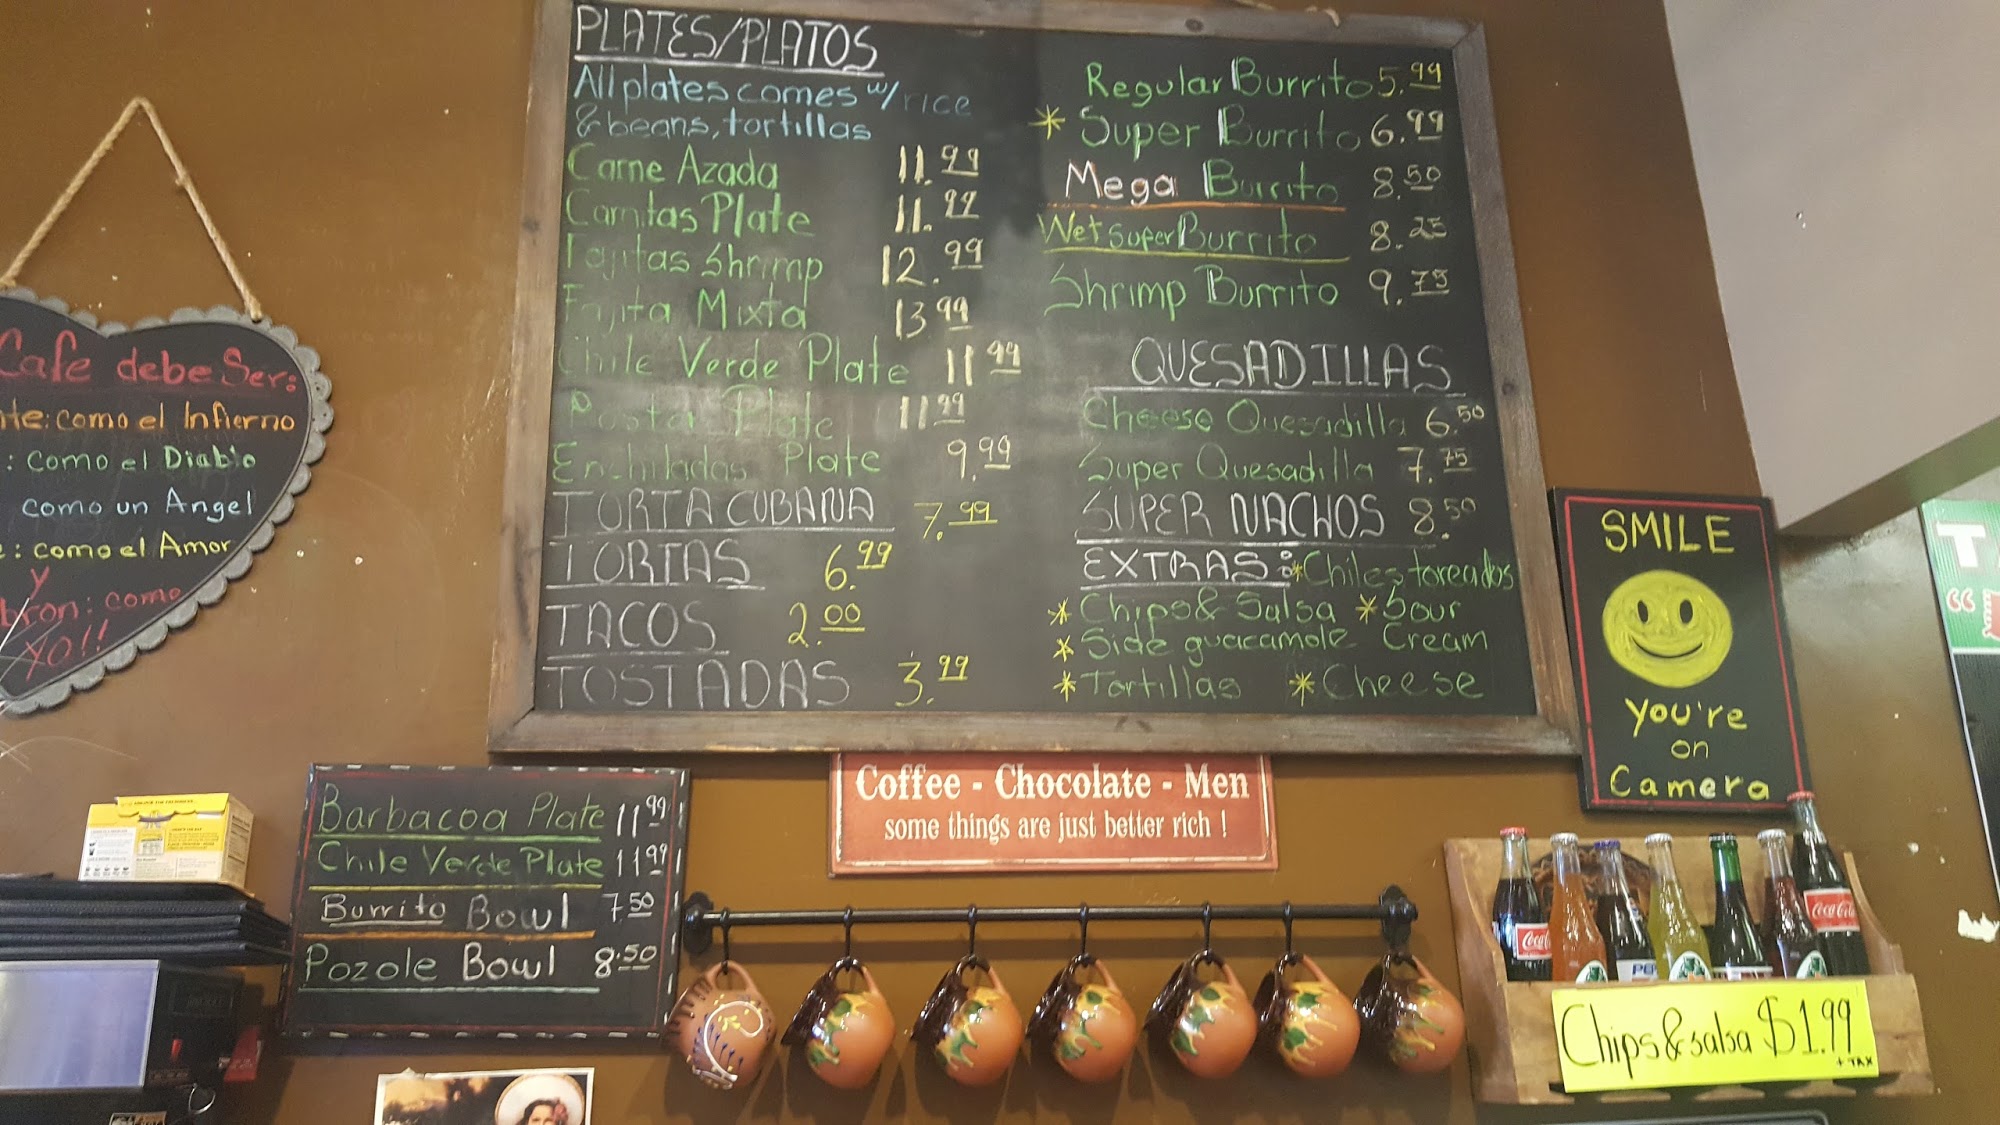 PLATES/PLATOS
All plates comes w/ rice
& beans, tortillas
Carne Azada 11.99
Carnitas Plate 11.99
Fajitas Shrimp 12.99
Fajita Mixta 13.99
Chile Verde Plate 11.99
Pastor Plate 11.99
Enchiladas Plate 9.99
TORTA CUBANA 7.99
TORTAS 6.99
TACOS 2.00
TOSTADAS 3.99
Regular Burrito 5.99
* Super Burrito 6.99
Mega Burrito 8.50
Wet super Burrito 8.25
Shrimp Burrito 9.75
QUESADILLAS
Cheese Quesadilla 6.50
Super Quesadilla 7.75
SUPER NACHOS 8.50
EXTRAS: *Chiles toreados
* Chips & Salsa * Sour
* Side guacamole Cream
* Tortillas * Cheese
Cafe debe Ser:
nte: como el Infierno
: como el Diablo
como un Angel
e: como el Amor
y
bron: como
yo!!
SMILE
you're
on
Camera
T
Coffee - Chocolate - Men
some things are just better rich !
Barbacoa Plate 11.99
Chile Verde Plate 11.99
Burrito Bowl 7.50
Pozole Bowl 8.50
Coca-Cola
Chips & salsa $1.99
+ TAX